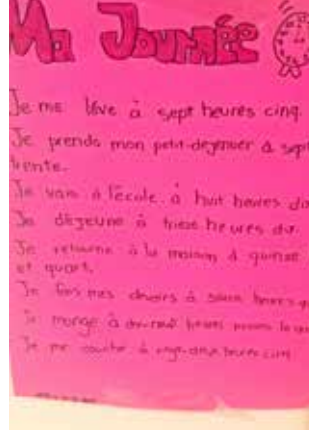 Ma Journée
Je me lève à sept heures cinq.
Je prends mon petit-dejeuner à sept
trente.
Je vais à l'école à huit heures dix
Je déjeune à treize heures dix.
Je retourne à la maison à quinze
et quart.
Je fais mes devoirs à seize heures
Je mange à heures moins le
Je me couche à vingt-deux heures cinq